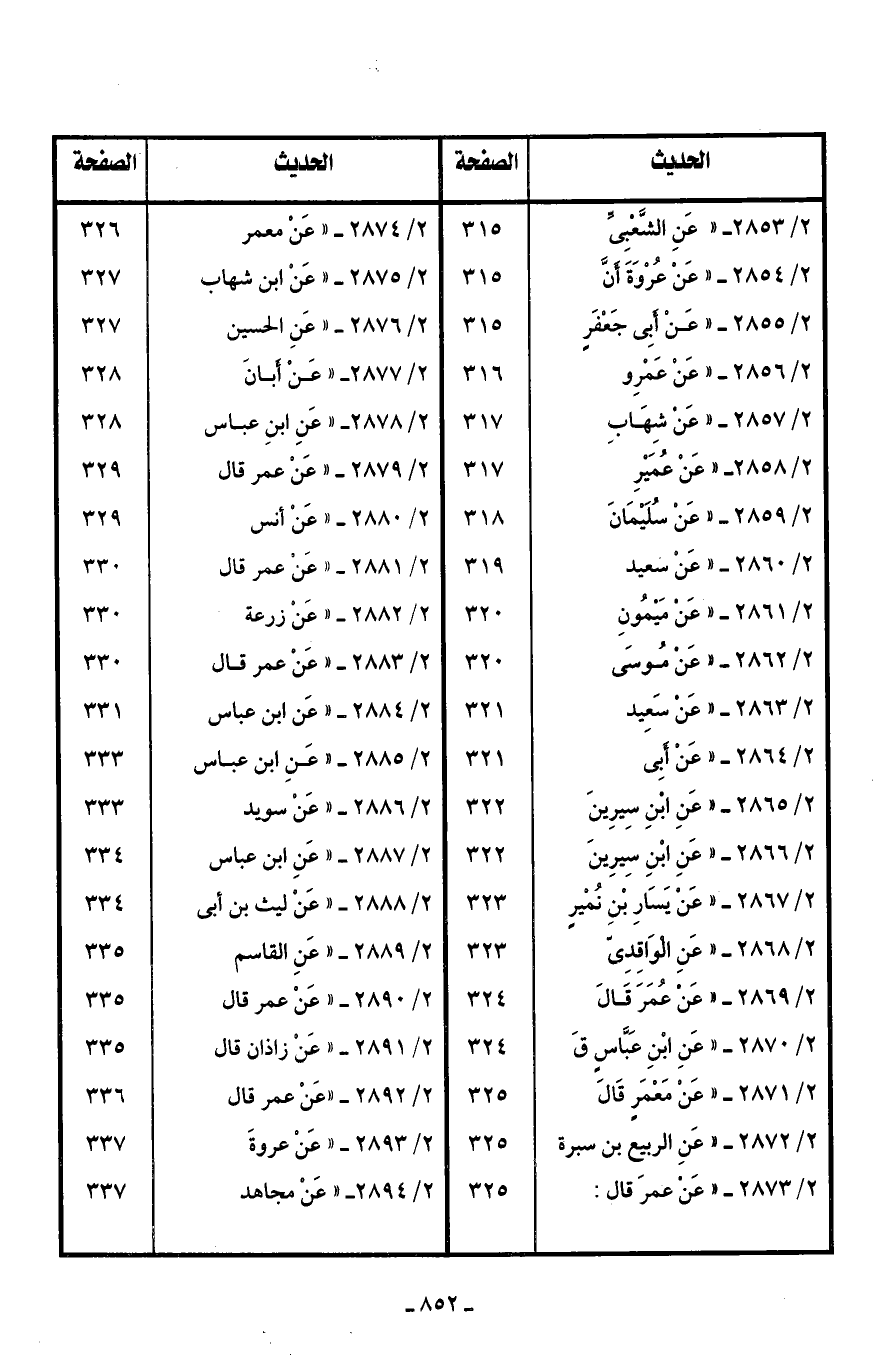 الحديث الصفحة الحديث الصفحة
٢/ ٢٨٥٣ـ « عَنِ الشَّعْبِىِّ ٣١٥ ٢/ ٢٨٧٤ ـ « عَنْ معمر ٣٢٦
٢/ ٢٨٥٤ ـ « عَنْ عُرْوَةَ أَنَّ ٣١٥ ٢/ ٢٨٧٥ ـ « عَنْ ابن شهاب ٣٢٧
٢/ ٢٨٥٥ ـ « عَنْ أَبِى جَعْفَرٍ ٣١٥ ٢/ ٢٨٧٦ ـ « عَنِ الحسين ٣٢٧
٢/ ٢٨٥٦ ـ « عَنْ عَمْرِو ٣١٦ ٢/ ٢٨٧٧ـ « عَنْ أَبانَ ٣٢٨
٢/ ٢٨٥٧ ـ « عَنْ شِهَابِ ٣١٧ ٢/ ٢٨٧٨ـ « عَنِ ابنِ عباس ٣٢٨
٢/ ٢٨٥٨ـ « عَنْ عُمَيْرِ ٣١٧ ٢/ ٢٨٧٩ ـ « عَنْ عمر قال ٣٢٩
٢/ ٢٨٥٩ ـ « عَنْ سُلَيْمَانَ ٣١٨ ٢/ ٢٨٨٠ ـ « عَنْ أنس ٣٢٩
٢/ ٢٨٦٠ ـ « عَنْ سَعِيد ٣١٩ ٢/ ٢٨٨١ ـ « عَنْ عمر قال ٣٣٠
٢/ ٢٨٦١ ـ « عَنْ مَيْمُونِ ٣٢٠ ٢/ ٢٨٨٢ ـ « عَنْ زرعة ٣٣٠
٢/ ٢٨٦٢ ـ « عَنْ مُوسَى ٣٢٠ ٢/ ٢٨٨٣ ـ « عَنْ عمر قال ٣٣٠
٢/ ٢٨٦٣ ـ « عَنْ سَعِيد ٣٢١ ٢/ ٢٨٨٤ ـ « عَنِ ابن عباس ٣٣١
٢/ ٢٨٦٤ ـ « عَنْ أَبِى ٣٢١ ٢/ ٢٨٨٥ ـ « عَنِ ابن عباس ٣٣٣
٢/ ٢٨٦٥ ـ « عَنِ ابْنِ سِيرِينَ ٣٢٢ ٢/ ٢٨٨٦ ـ « عَنْ سويد ٣٣٣
٢/ ٢٨٦٦ ـ « عَنِ ابْنِ سِيرِينَ ٣٢٢ ٢/ ٢٨٨٧ ـ « عَنِ ابن عباس ٣٣٤
٢/ ٢٨٦٧ ـ « عَنْ يَسَارِ بْنِ نُمْيرٍ ٣٢٣ ٢/ ٢٨٨٨ ـ « عَنْ ليث بن أبى ٣٣٤
٢/ ٢٨٦٨ ـ « عَنِ الْوَاقِدِىّ ٣٢٣ ٢/ ٢٨٨٩ ـ « عَنِ القاسم ٣٣٥
٢/ ٢٨٦٩ ـ « عَنْ عُمَرَ قَالَ ٣٢٤ ٢/ ٢٨٩٠ ـ « عَنْ عمر قال ٣٣٥
٢/ ٢٨٧٠ ـ « عَنِ ابْنِ عَبَّاسٍ قَ ٣٢٤ ٢/ ٢٨٩١ ـ « عَنْ زاذان قال ٣٣٥
٢/ ٢٨٧١ ـ « عَنْ مَعْمَرٍ قَالَ ٣٢٥ ٢/ ٢٨٩٢ ـ «عَنْ عمر قال ٣٣٦
٢/ ٢٨٧٢ ـ « عَنِ الربيع بن سبرة ٣٢٥ ٢/ ٢٨٩٣ ـ « عَنْ عروةَ ٣٣٧
٢/ ٢٨٧٣ ـ « عَنْ عمرَ قال : ٣٢٥ ٢/ ٢٨٩٤ـ « عَنْ مجاهد ٣٣٧
ـ ٨٥٢ ـ